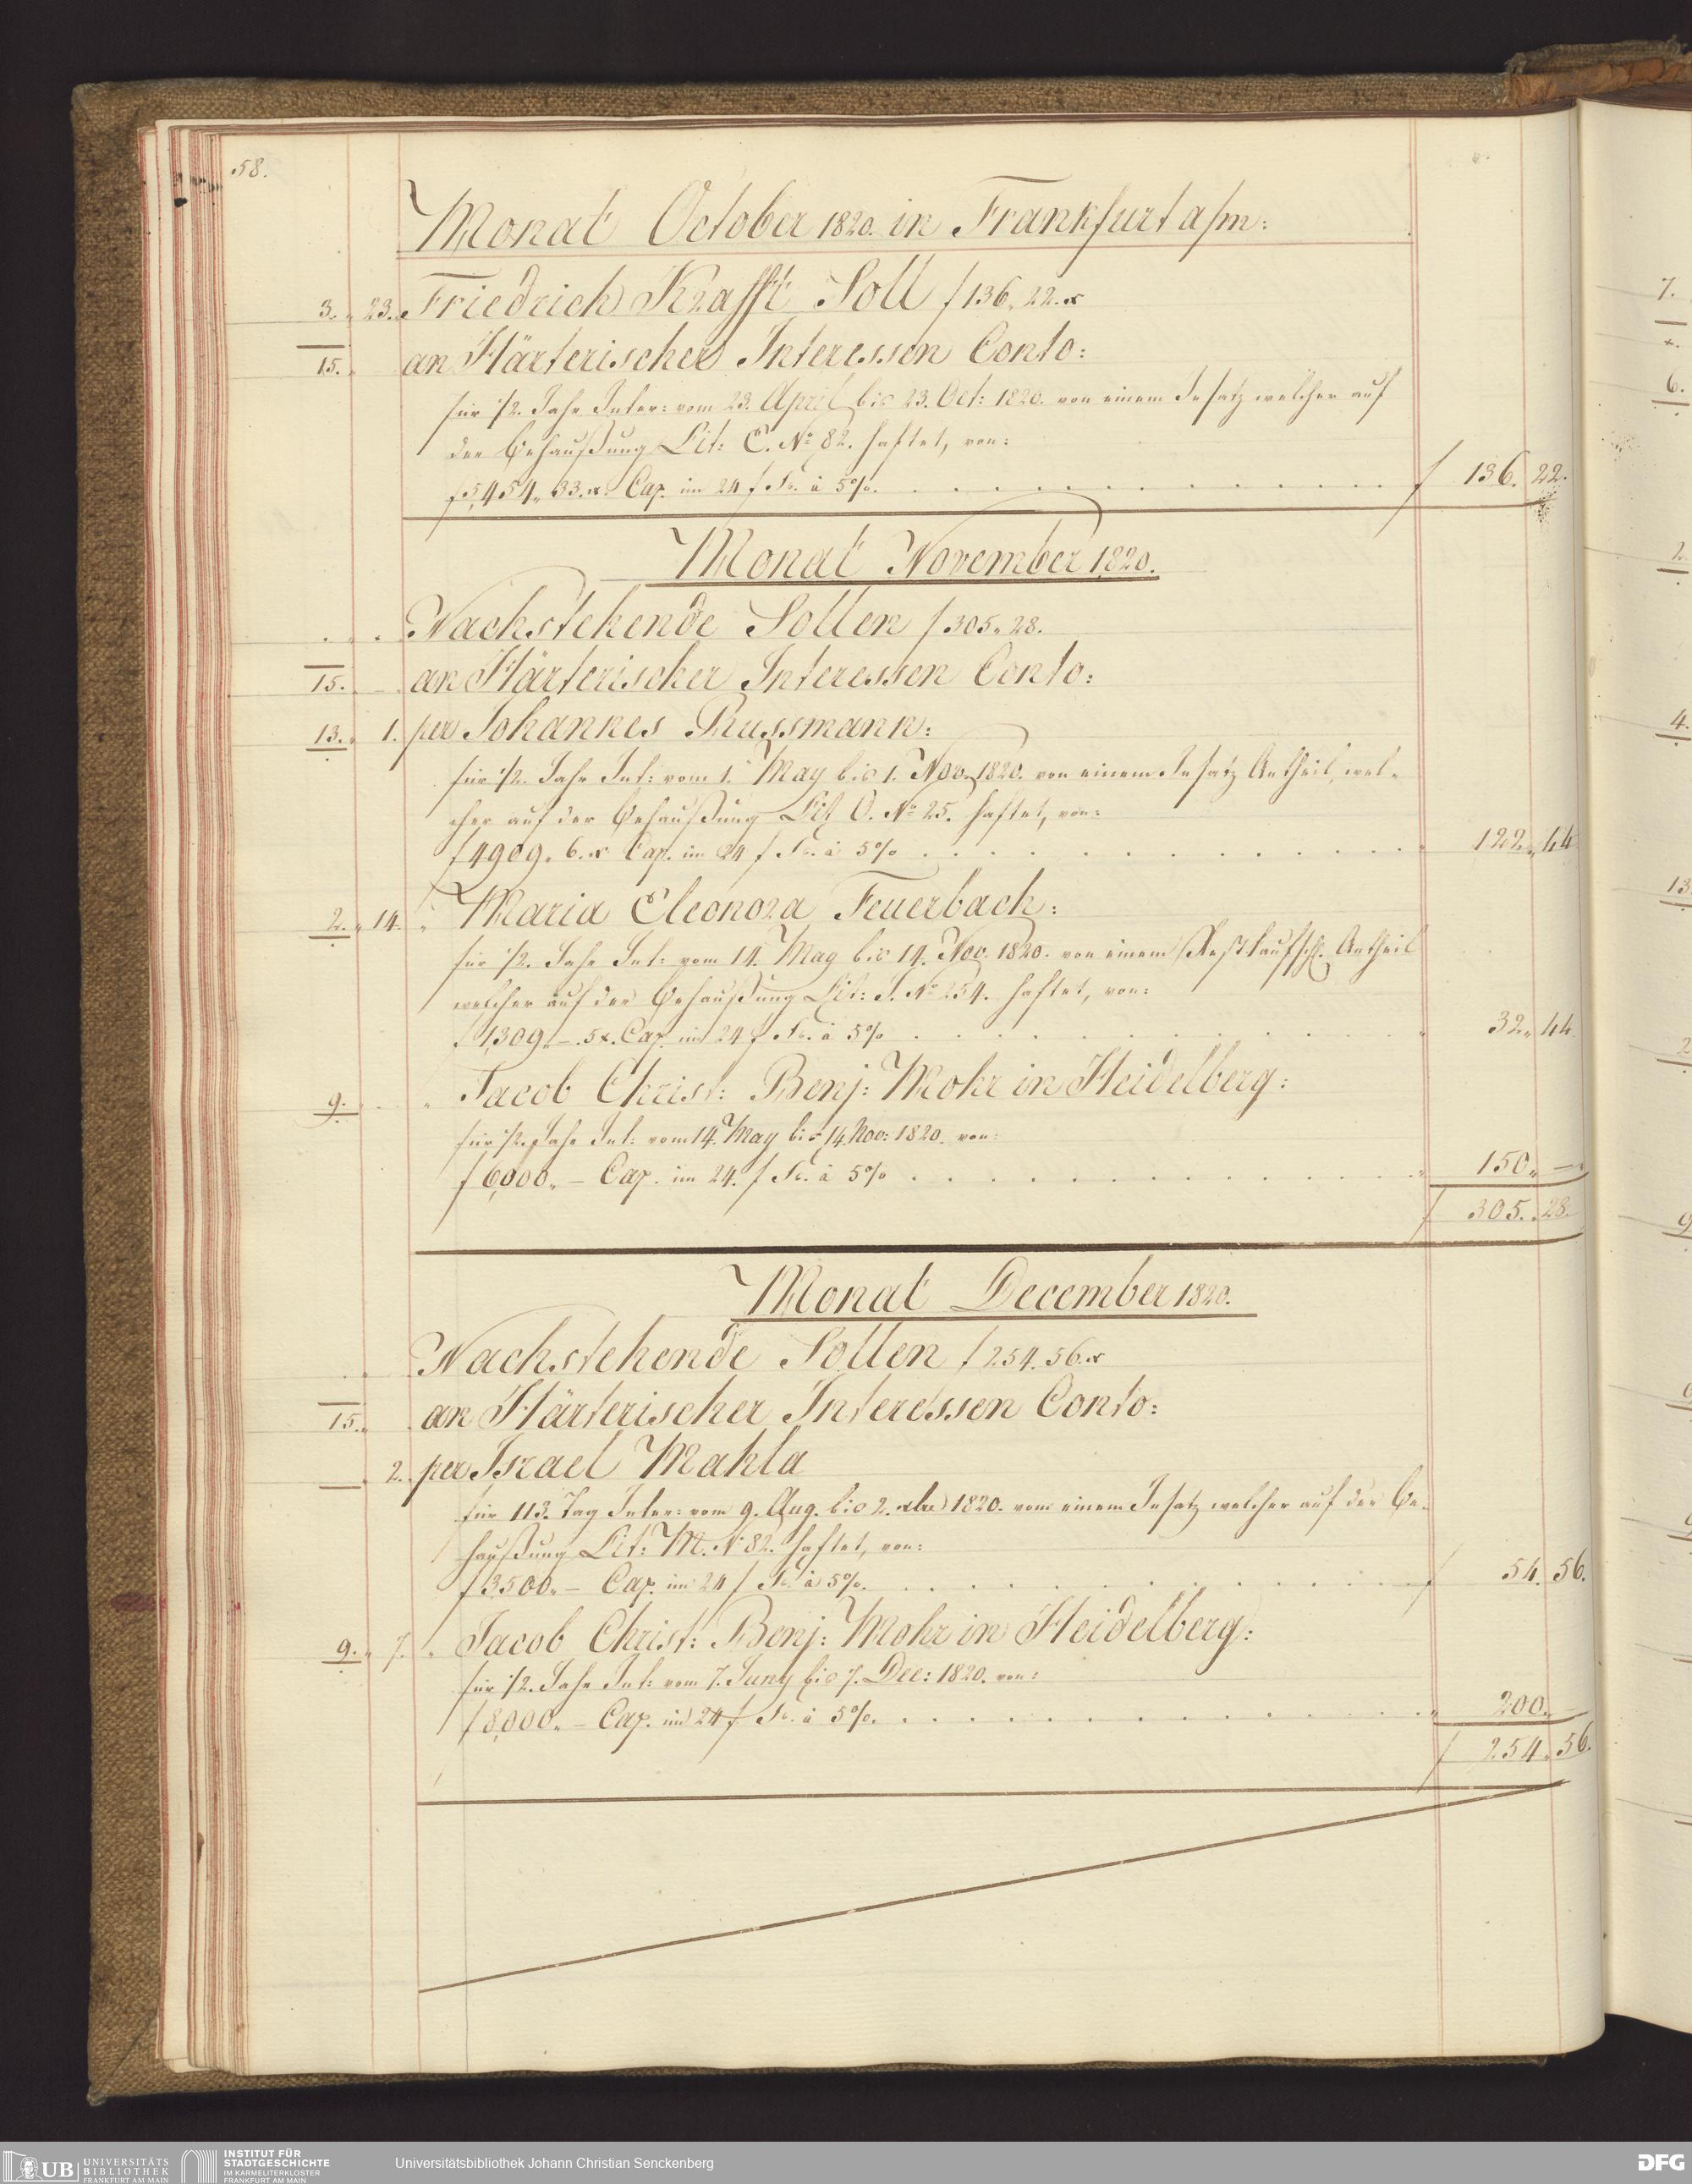 58.
Monat October 1820. in Frankfurt a/m:
3. 23. Friedrich Krafft Soll f 136. 22. x
15. an Härterischer Interessen Conto:
für 1/2. Jahr Inter: vom 23. April bis 23. Oct: 1820. von einem Insatz welcher auf
der Behaußung Lit: C. No 82. haftet, von:
f 5,454. 33. x. Cap. im 24 f Fs. à 5%. f 136. 22.
Monat November 1820.
Nachstehende Sollen f 305. 28.
15. an Härterischer Interessen Conto:
13. 1. per Johannes Russmann:
für 1/2. Jahr Int: vom 1. May bis 1. Nov. 1820. von einem Insatz Antheil, wel-
cher auf der Behaußung Lit O. No 25. haftet, von:
f 4909. 6. x Cap. im 24 f Fs. à 5% 122. 44
2. 14. " Maria Eleonora Feuerbach:
für 1/2. Jahr Int: vom 14. May bis 14. Nov. 1820. von einem Restkaufsch. Antheil
welcher auf der Behaußung Lit: J. No 254. haftet, von:
f 1,309. – 5 x. Cap. im 24 f Fs. à 5% 32. 44.
9. " Jacob Christ: Benj: Mohr in Heidelberg:
für 1/2. Jahr Int: vom 14. May bis 14. Nov: 1820. von:
f 6,000. – Cap. im 24. f Fs. à 5% 150. –
f 305. 28.
Monat December 1820.
Nachstehende Sollen f 254. 56. x
15. an Härterischer Interessen Conto:
2. per Israel Mahla
für 113. Tag Inter: vom 9. Aug. bis 2. xbre 1820. vom einem Insatz welcher auf der Be-
haußung Lit: M. No 82. haftet, von:
f 3,500. – Cap. im 24 f Fs. à 5%. f 54. 56.
9. 7. " Jacob Christ: Benj: Mohr in Heidelberg:
für 1/2. Jahr Int: vom 7. Juny bis 7. Dec: 1820. von:
f 8,000. – Cap. im 24 f Fs. à 5%. 200. –
f 254. 56.
7.
6.
4.
13
2
UB UNIVERSITÄTS BIBLIOTHEK FRANKFURT AM MAIN
INSTITUT FÜR STADTGESCHICHTE IM KARMELITERKLOSTER FRANKFURT AM MAIN
Universitätsbibliothek Johann Christian Senckenberg
DFG